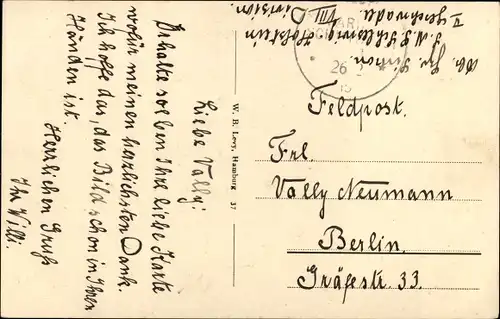 Liebe Vally!
Erhalte soeben Ihre liebe Karte
wofür meinen herzlichsten Dank.
Ich hoffe das, das Bild schon in Ihren
Händen ist.
Herzlichen Gruß
Ihr Willi.
W. B. Levy, Hamburg 37
Schleswig Holstein
VIII Division
V Geschwader
26
Feldpost.
Frl.
Vally Neumann
Berlin.
Gräfestr. 33.